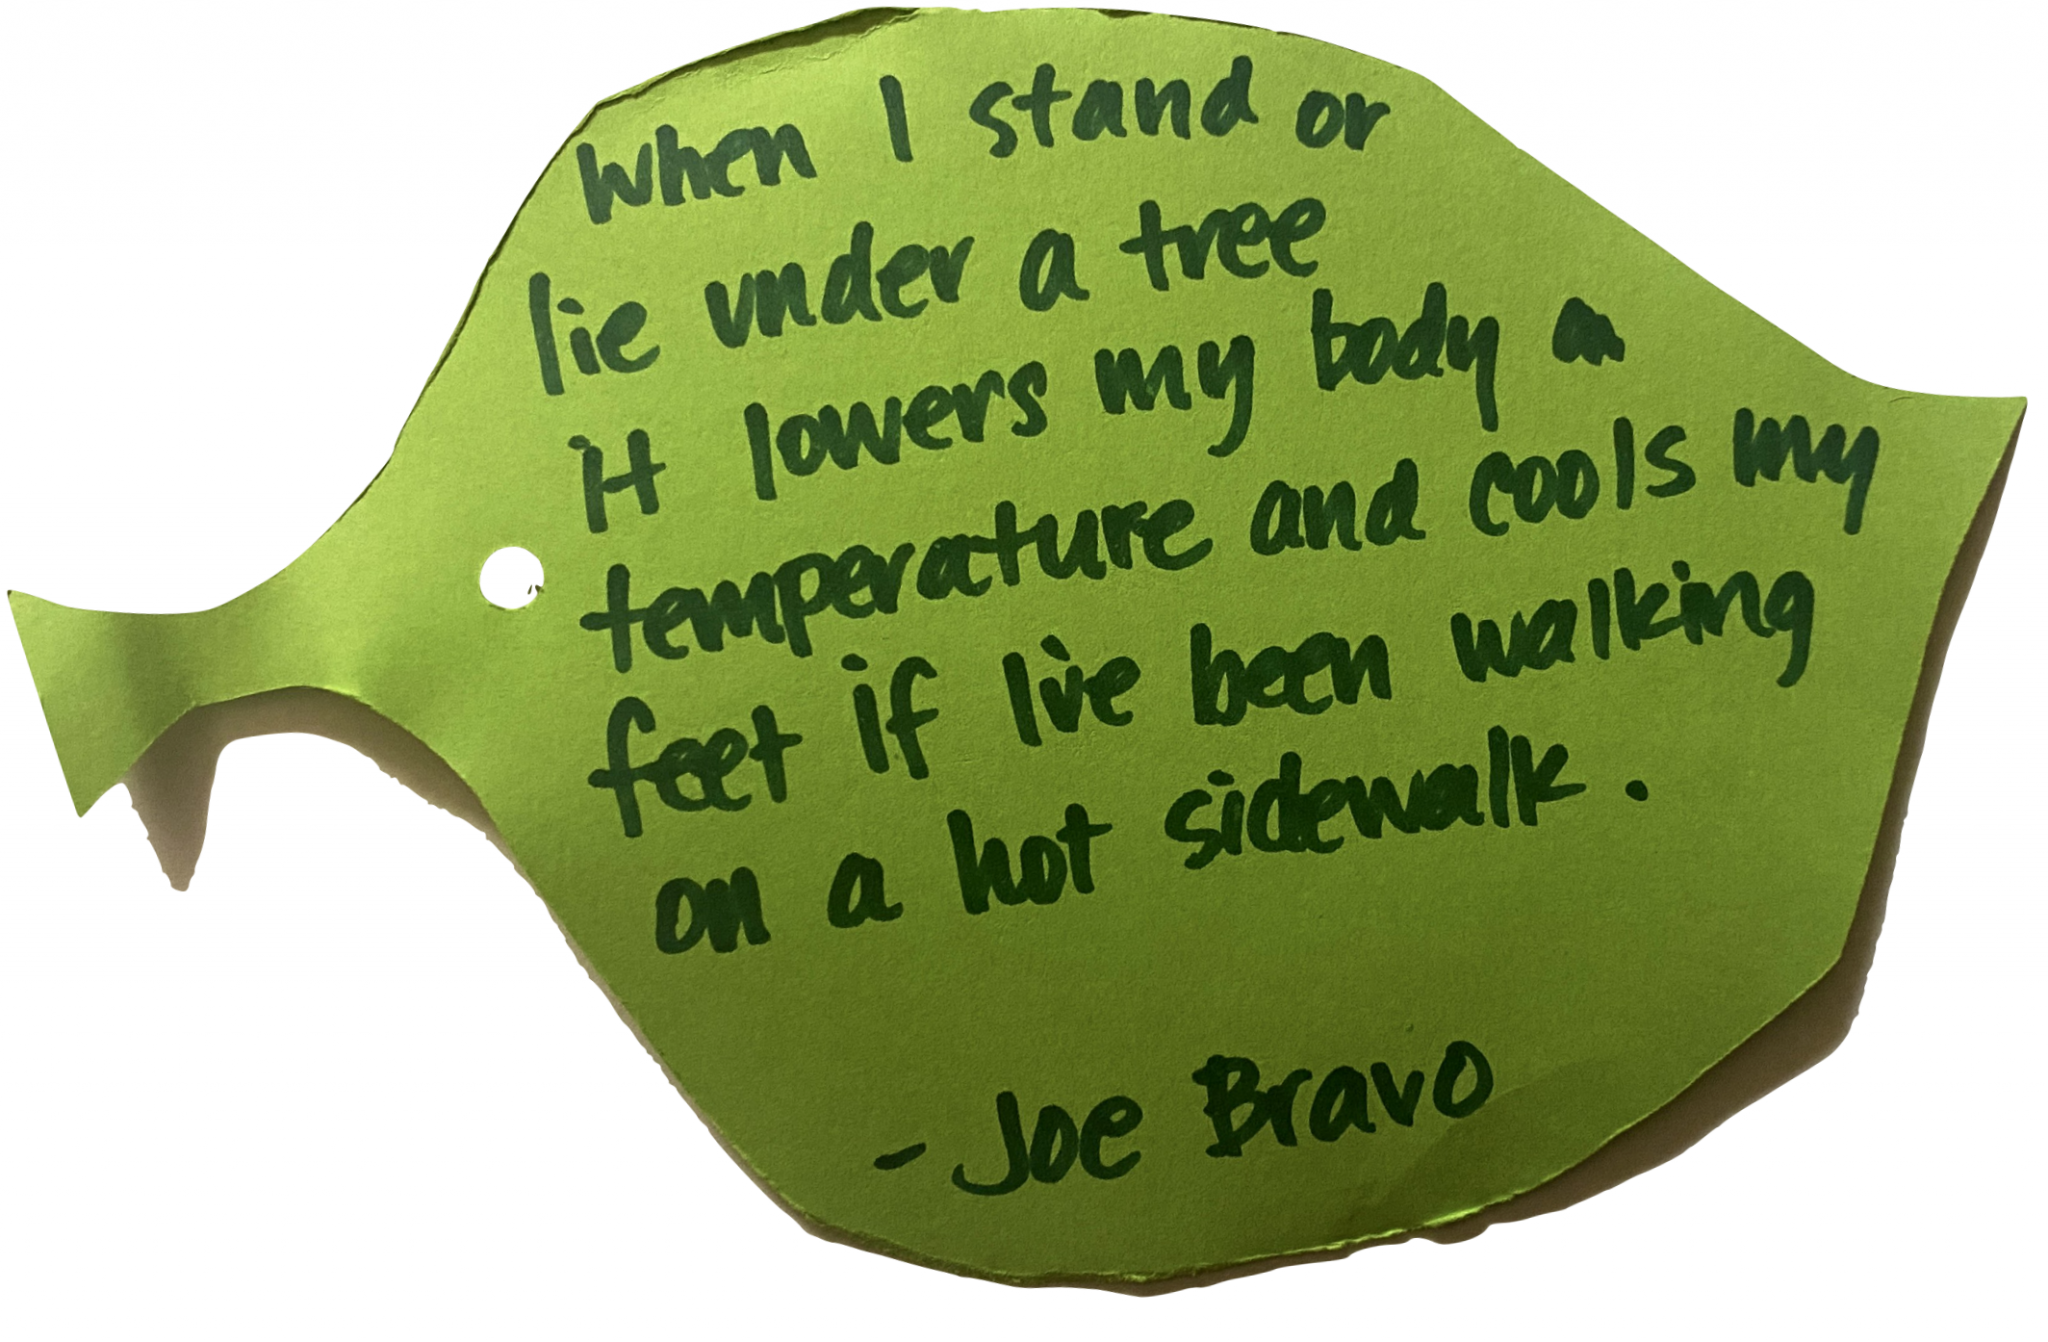 When I stand or
lie under a tree
it lowers my body
temperature and cools my
feet if I've been walking
on a hot sidewalk.
- Joe Bravo